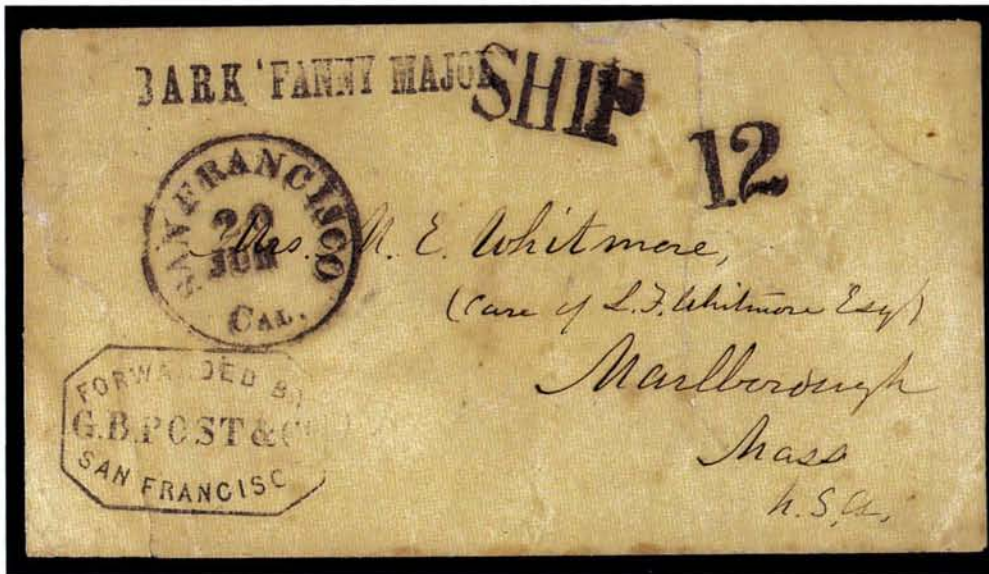 BARK 'FANNY MAJOR
SHIP
12
SAN FRANCISCO
20
JUN
CAL.
Mrs. N. E. Whitmore,
(Care of L.F. Whitmore Esq)
Marlborough
Mass
U.S.A.
FORWARDED BY
G.B. POST & CO
SAN FRANCISC